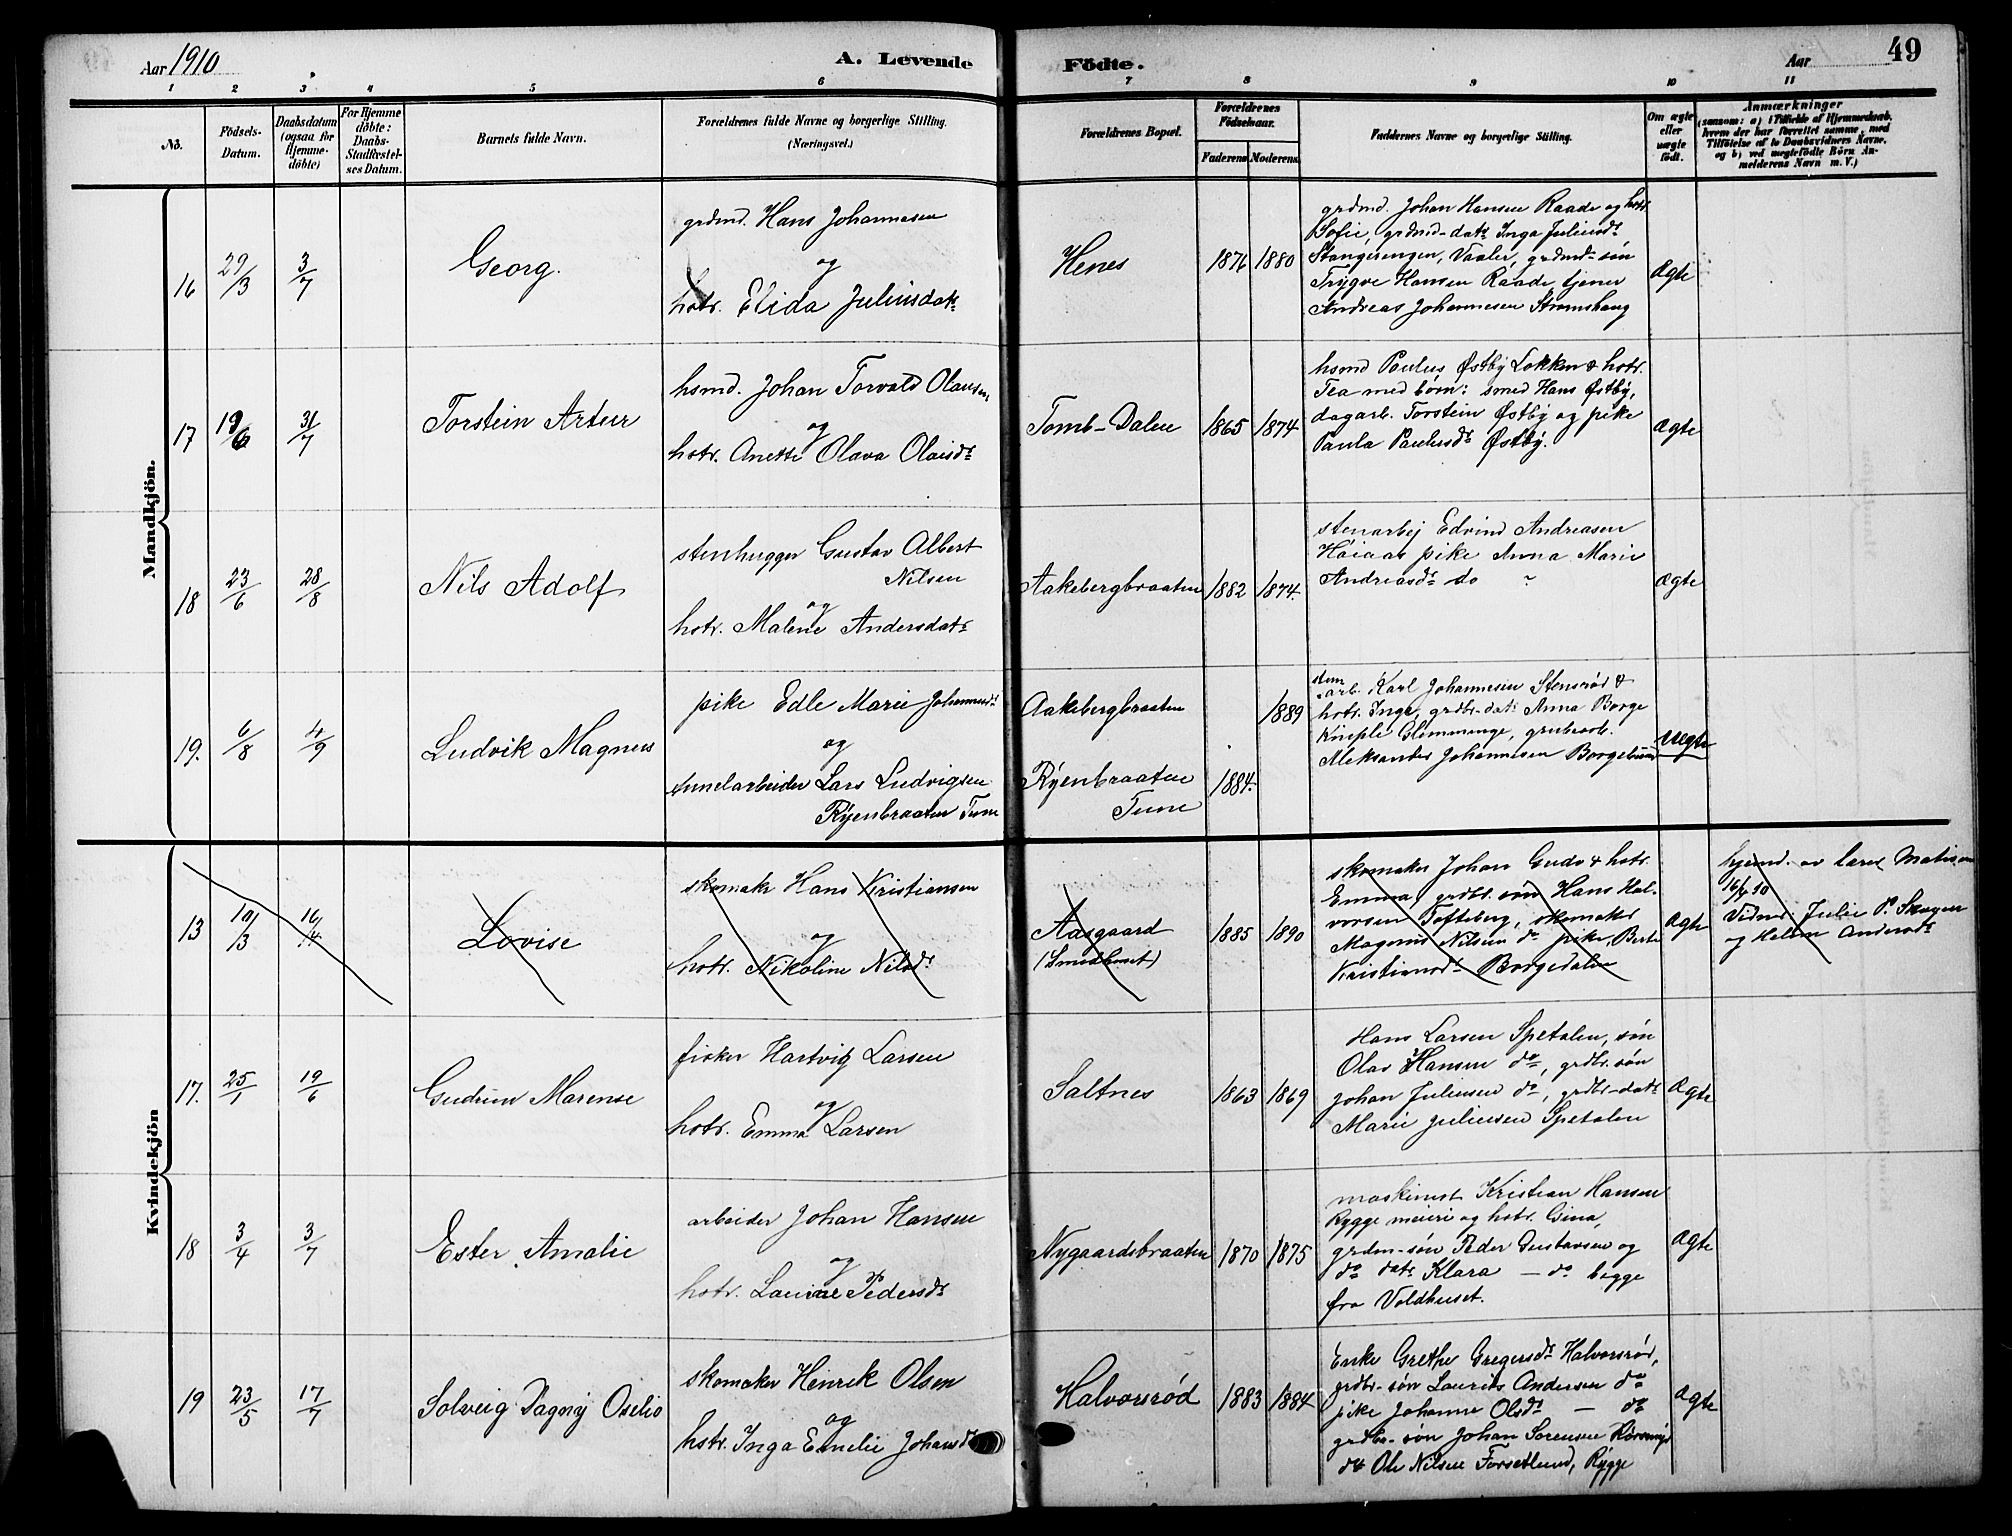 Aar 1910
A. Levende Födte.
Aar
49
1 2 3 4 5 6 7 8 9 10 11
No.
Födsels-
Datum.
Daabsdatum
(ogsaa for
Hjemme-
döbte)
For Hjemme
döbte:
Daabs-
Stadfæstel-
ses Datum.
Barnets fulde Navn.
Forældrenes fulde Navne og borgerlige Stilling.
(Næringsvei.)
Forældrenes Bopæl.
Forældrenes
Födselsaar.
Faderens Moderens
Faddernes Navne og borgerlige Stilling.
Om ægte
eller
uægte
födt.
Anmærkninger
(saasom: a) i Tilfælde af Hjemmedaab,
hvem der har forrettet samme, med
Tilföielse af to Daabsvidners Navne,
og b) ved uægtefödte Börn An-
melderens Navn m. V.)
Mandkjön.
16
29/3
3/7
Georg.
grdmd. Hans Johannesen
og
hstr. Elida Juliusdatr
Henes
1876 1880
grdmd. Johan Hansen Raade og hstr.
Sofie, grdmd-datr Inga Juliusdr
Stangerengen, Vaaler, grdmd-søn
Trygve Hansen Raade, tjener
Andreas Johannesen Strømshaug
ægte
17
19/6
31/7
Torstein Artur
hsmd. Johan Torvald Olausen
og
hstr. Anette Olava Olaisdr
Tomb-Dalen
1865 1874
hsmd Paulus Østby Løkken & hstr.
Tea med børn: smed Hans Østby,
dagarb. Torstein Østby og pike
Paula Paulusdr Østby.
ægte
18
23/6
28/8
Nils Adolf
stenhugger Gustav Albert
Nilsen
og
hstr. Malene Andersdatr
Aakebergbraaten
1882 1874.
stenarbej Edvind Andreasen
Høiaas pike Anna Marie
Andreasdr do
ægte
19.
6/8
4/9
Ludvik Magnus
pike Edle Marie Johannesdr
og
tunelarbeider Lars Ludvigsen
Ryenbraaten Tune
Aakebergbraaten
1889
Ryenbraaten
Tune
1884.
sten
arb. Karl Johannesen Stensrød &
hstr. Inga, grdbr-datr Anna Borge
Kniple Glemminge, grubearb.
Aleksander Johannesen Borgebund
uegte
Kvindekjön
13
19/3
16/4
Lovise
skomaker Hans Kristiansen
og
hstr. Nikoline Nilsdr
Aasgaard
(Smedhuset)
1885 1890
skomaker Johan Gude & hstr.
Emma, grdbr. søn Hans Hal-
vorsen Tofteberg, skomaker
Magnus Nilsen do pike, Berte
Kristiansdr Borgedalen
ægte
hjemd. av lærer Matisen
16/4 10
Vidner Julie P. Skogen
og Helene Andersdr
17.
25/1
19/6
Gudrun Marense
fisker Hartvig Larsen
og
hstr. Emma Larsen
Saltnes
1863 1869
Hans Larsen Spetalen, søn
Olav Hansen do, grdbr. søn
Johan Juliusen do, grdbr-datr
Marie Juliusen Spetalen
ægte
18
3/4
3/7
Ester Amalie
arbeider Johan Hansen
og
hstr. Lovise Pedersdr
Nygaardsbraaten
1870 1875
maskinist Kristian Hansen
Rygge meieri og hstr. Gina,
grdm-søn Peder Gustavsen og
do datr Klara — do begge
fra Voldhuset.
ægte
19
23/5
17/7
Solveig Dagny Oselio
skomaker Henrik Olsen
og
hstr. Inga Emelie Johansdr
Halvorsrød
1883 1884
Enke Grethe Gregersdr Halvorsrød,
grdbr-søn Laurits Andersen do
pike Johanne Olsdr — do
grdbr-søn Johan Sørensen Rørsmyr
do Ole Nilsen Forsetlund, Rygge
ægte